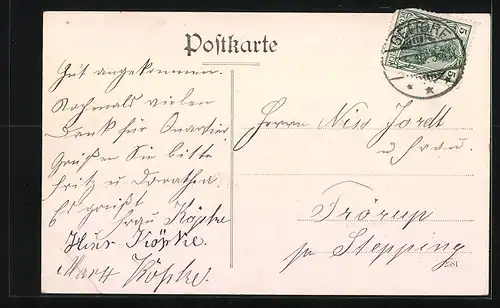 Postkarte
Gut angekommen.
Nochmals vielen
Dank für Quartier.
Grüßen Sie bitte
Fritz u Dorathea.
Es grüßt
Frau Köpke
Köpke.
Köpke.
Herrn Niss Jordt
u Frau.
Törup
pr Stepping
5
5